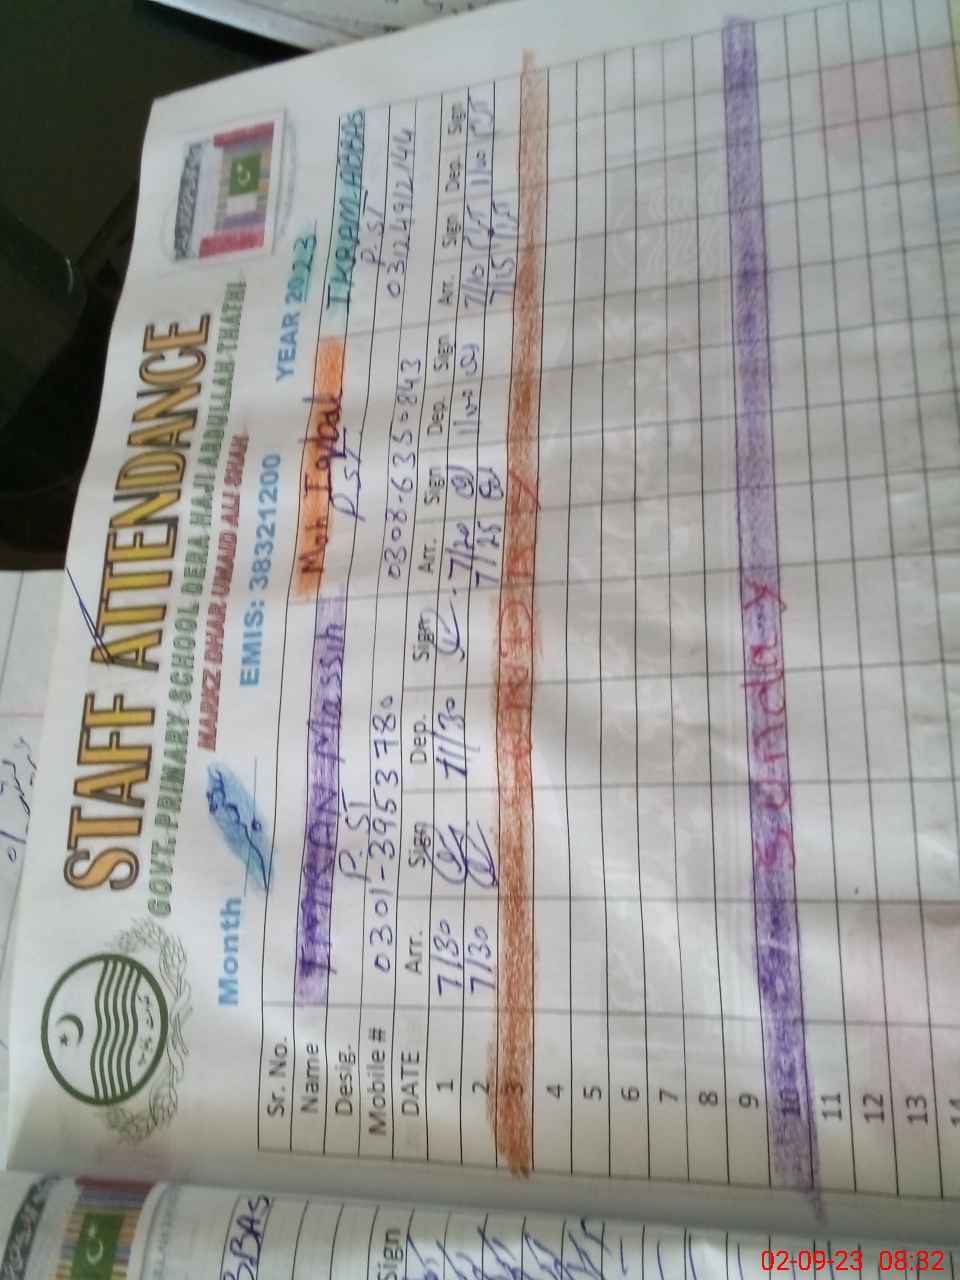 STAFF ATTENDANCE
GOVT. PRIMARY SCHOOL DERA HAJI ABDULLAH THATHI
MARKZ DHAR UMAID ALI SHAH
Month EMIS: 383221200 YEAR 2023
Sr. No.
Name IMRAN Massih Moh Iqbal IKRAM ABBAS
Desig. P.ST P.ST. P.ST
Mobile # 0301-3953780 0308-6350843 03124912144
DATE Arr. Sign Dep. Sign Arr. Sign Dep. Sign Arr. Sign Dep. Sign
1 7/30 11/30 7/20 7/10
2 7/30 7/25 7/15
3
4
5
6
7
8
9
10 Sunday
11
12
13
14
BBAS
Sign
02-09-23 08:32